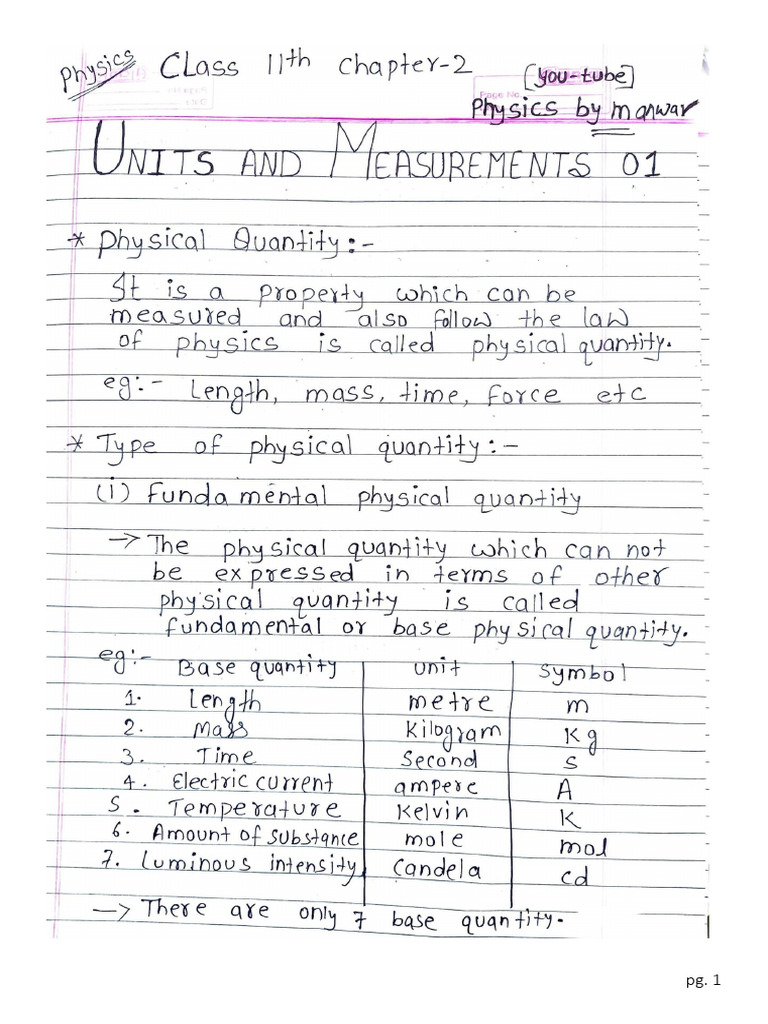 Physics Class 11th Chapter-2 [you-tube]
Physics by manwar
UNITS AND MEASUREMENTS 01
* Physical Quantity:-
It is a property which can be
measured and also follow the law
of physics is called physical quantity.
eg:- Length, mass, time, force etc
* Type of physical quantity:-
(i) Fundamental physical quantity
→ The physical quantity which can not
be expressed in terms of other
physical quantity is called
fundamental or base physical quantity.
eg:- Base quantity unit Symbol
1. Length metre m
2. Mass Kilogram Kg
3. Time Second s
4. Electric current ampere A
5. Temperature Kelvin K
6. Amount of substance mole mol
7. Luminous intensity Candela cd
→ There are only 7 base quantity.
pg. 1